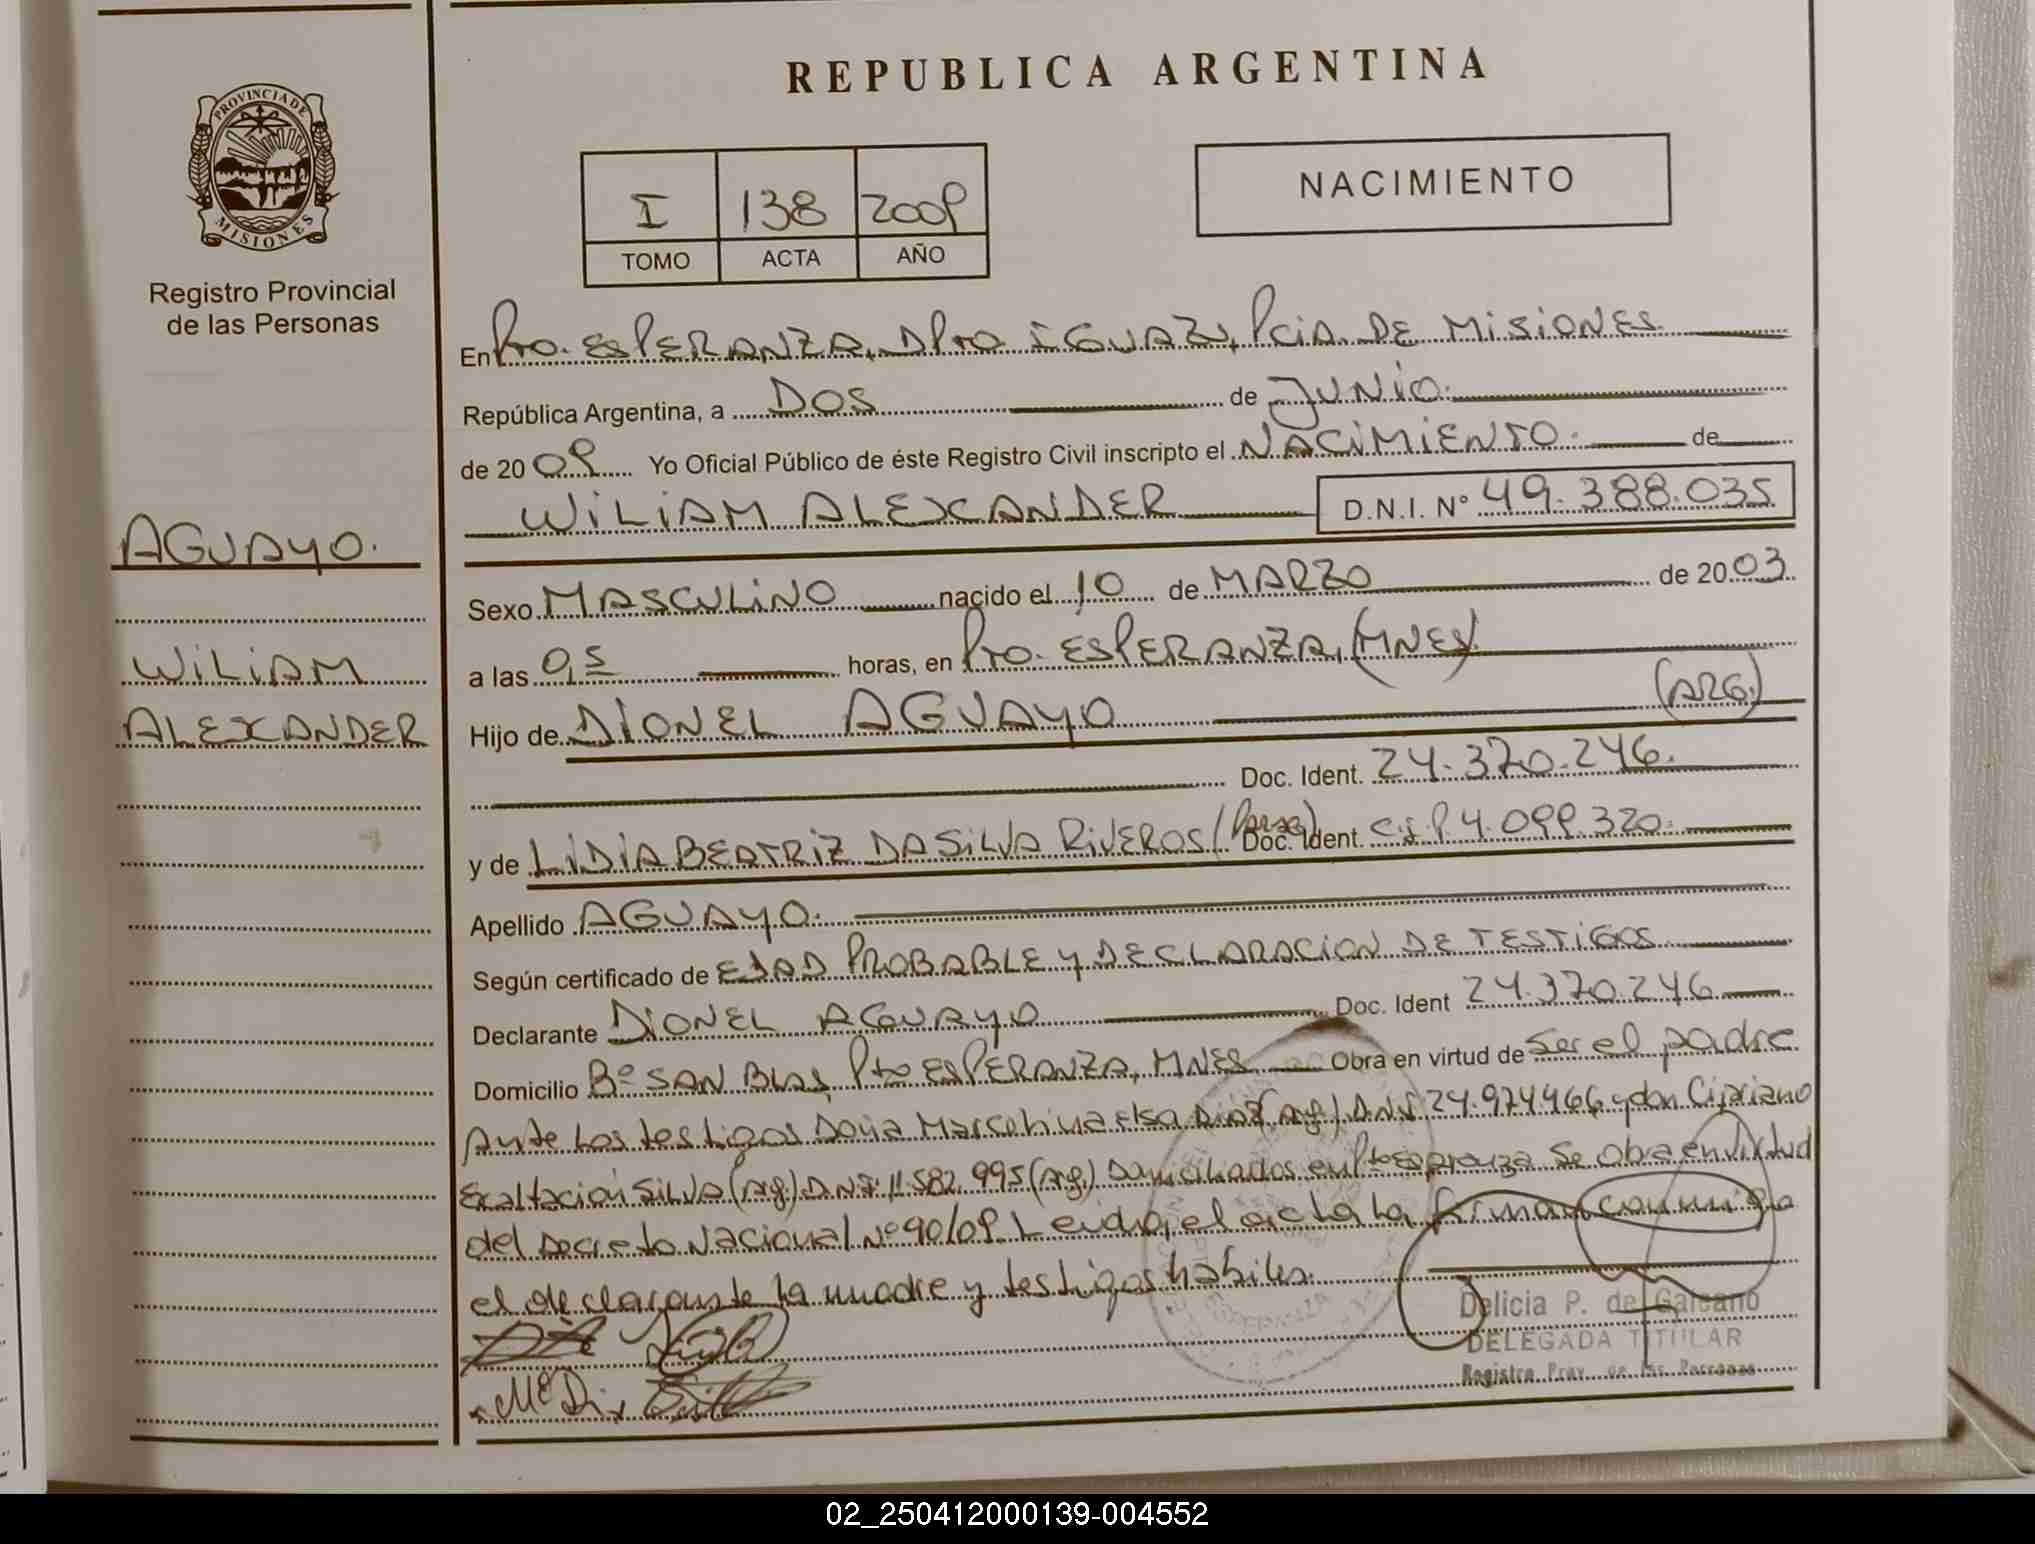 REPUBLICA ARGENTINA
PROVINCIA DE
MISIONES
Registro Provincial
de las Personas
I 138 2009
TOMO ACTA AÑO
NACIMIENTO
En Pto. ESPERANZA, DPTO IGUAZU, PCIA. DE MISIONES
República Argentina, a DOS de JUNIO.
de 2009 Yo Oficial Público de éste Registro Civil inscripto el NACIMIENTO. de
WILIAM ALEXANDER D.N.I. Nº 49.388.035
AGUAYO.
WILIAM
ALEXANDER
Sexo MASCULINO nacido el 10 de MARZO de 2003
a las 0,5 horas, en Pto. ESPERANZA, (MNES)
Hijo de DIONEL AGUAYO (ARG.)
Doc. Ident. 24.370.246.
y de LIDIA BEATRIZ DA SILVA RIVEROS (Parag) Doc. Ident. C.I.P 4.099.320.
Apellido AGUAYO.
Según certificado de EDAD PROBABLE Y DECLARACION DE TESTIGOS
Declarante DIONEL AGUAYO Doc. Ident 24.370.246
Domicilio Bº SAN BLAS, Pto ESPERANZA, MNES Obra en virtud de Ser el padre
Ante los testigos Doña Marcelina Elsa DIAZ (Arg.) D.N.I 24.974466 y don Cipriano
Exaltación SILVA (Arg.) D.N.I. 11.582.995 (Arg.) Domiciliados en Pto Esperanza Se obra en virtud
del Decreto Nacional Nº 90/09. Leída, el acta la firman conmigo
el declarante la madre y testigos hábiles.
Delicia P. de Galeano
DELEGADA TITULAR
Registro Prov. de las Personas
Mª Di
02_250412000139-004552